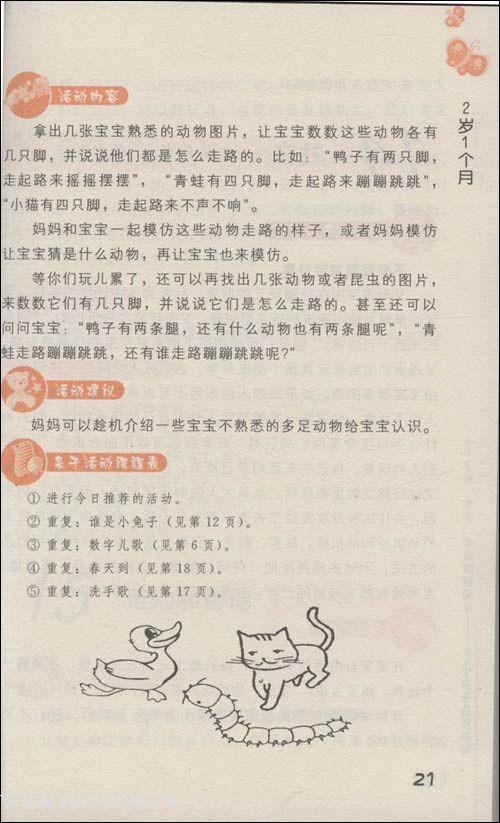 2岁1个月
活动内容
拿出几张宝宝熟悉的动物图片，让宝宝数数这些动物各有
几只脚，并说说他们都是怎么走路的。比如：“鸭子有两只脚，
走起路来摇摇摆摆”，“青蛙有四只脚，走起路来蹦蹦跳跳”，
“小猫有四只脚，走起路来不声不响”。
妈妈和宝宝一起模仿这些动物走路的样子，或者妈妈模仿
让宝宝猜是什么动物，再让宝宝也来模仿。
等你们玩儿累了，还可以再找出几张动物或者昆虫的图片，
来数数它们有几只脚，并说说它们是怎么走路的。甚至还可以
问问宝宝：“鸭子有两条腿，还有什么动物也有两条腿呢”，“青
蛙走路蹦蹦跳跳，还有谁走路蹦蹦跳跳呢？”
活动建议
妈妈可以趁机介绍一些宝宝不熟悉的多足动物给宝宝认识。
亲子活动课程表
① 进行今日推荐的活动。
② 重复：谁是小兔子（见第 12 页）。
③ 重复：数字儿歌（见第 6 页）。
④ 重复：春天到（见第 18 页）。
⑤ 重复：洗手歌（见第 17 页）。
21